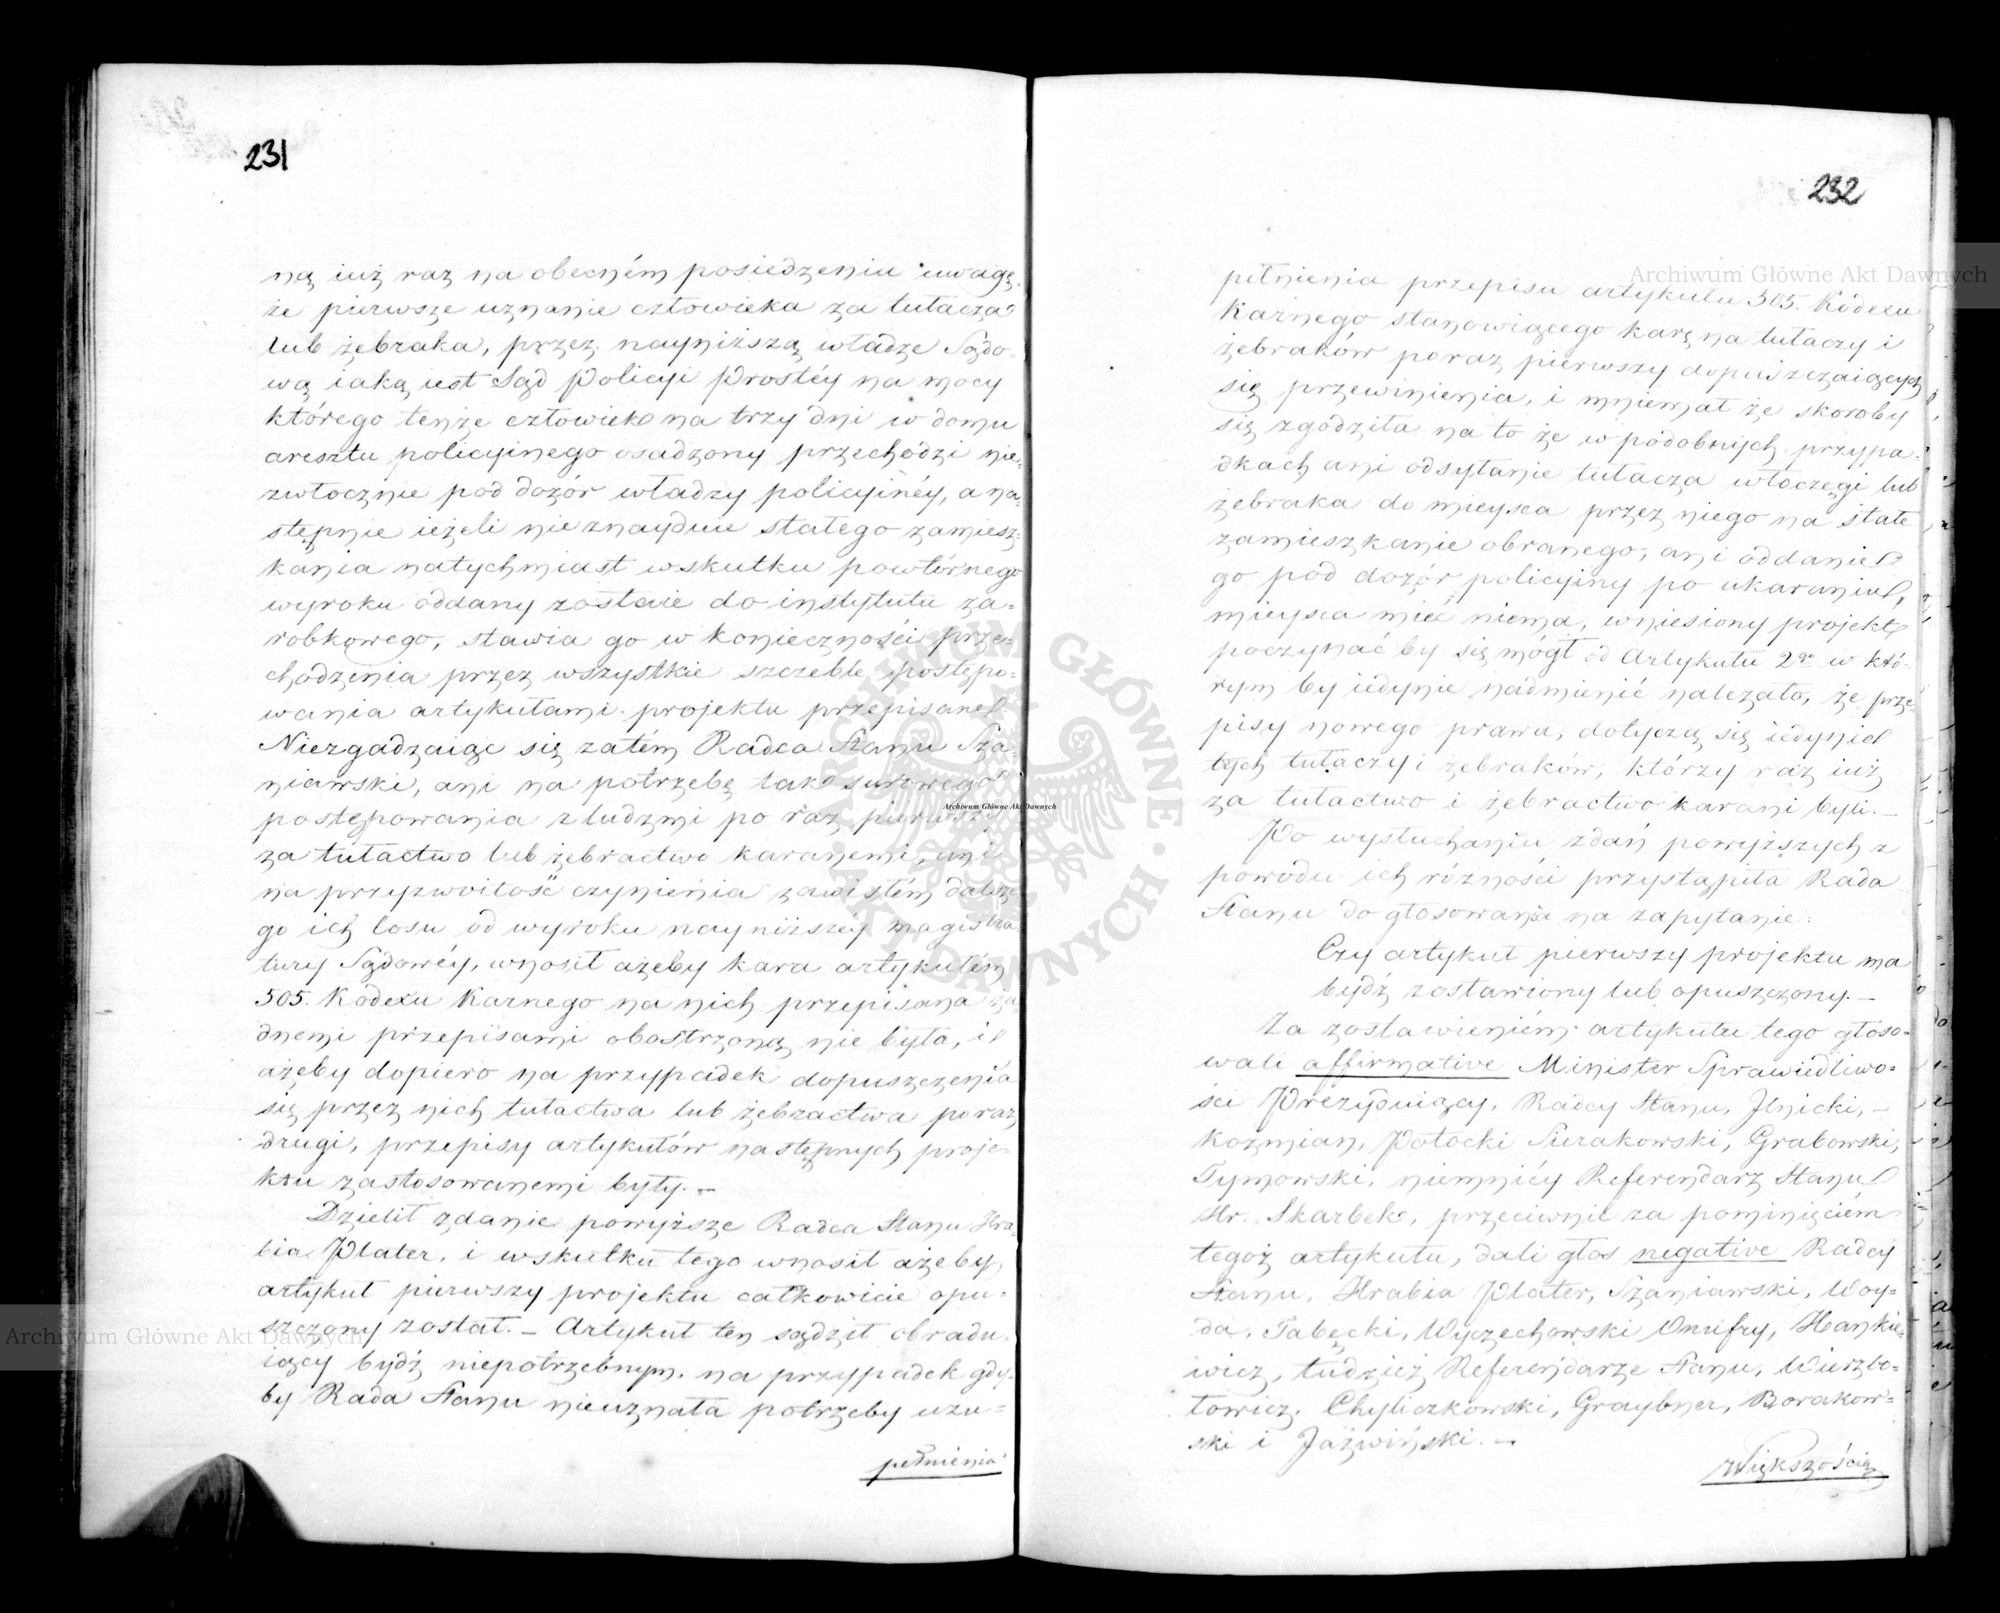 231
ną iuż raz na obecném posiedzeniu uwagę,
że pierwsze uznanie człowieka za tułacza
lub żebraka, przez nayniższą władzę Sądo-
wą iaką iest Sąd Policyi Prostéy na mocy
którego tenże człowiek na trzy dni w domu
aresztu policyinego osadzony przechodzi nie-
zwłocznie pod dozór władzy policyinéy, a na-
stępnie ieżeli nie znayduie stałego zamiesz-
kania natychmiast wskutku powtórnego
wyroku oddany zostaie do instytutu za-
robkowego, stawia go w konieczności prze-
chodzenia przez wszystkie szczeble postępo-
wania artykułami projektu przepisane.
Niezgadzaiąc się zatém Radca Stanu Sza-
niawski, ani na potrzebę tak surowego
postępowania z ludźmi po raz pierwszy
za tułactwo lub żebractwo karanemi, ani
na przyzwoitość czynienia zawisłém dalsze-
go ich losu od wyroku nayniższéy magistra-
tury Sądowéy, wnosił ażeby kara artykułém
505. Kodexu Karnego na nich przepisana ża-
dnemi przepisami obostrzoną nie była, i
ażeby dopiero na przypadek dopuszczenia
się przez nich tułactwa lub żebractwa po raz
drugi, przepisy artykułów następnych proje-
ktu zastosowanemi były. —
Dzielił zdanie powyższe Radca Stanu Hra-
bia Plater, i wskutku tego wnosił ażeby
artykuł pierwszy projektu całkowicie opu-
szczony został. — Artykuł ten sądził obradu-
iący bydź niepotrzebnym, na przypadek gdy-
by Rada Stanu nieuznała potrzeby uzu-
pełnienia
232
pełnienia przepisu artykułu 505. Kodexu
Karnego stanowiącego karę na tułaczy i
żebraków po raz pierwszy dopuszczaiących
się przewinienia, i mniemał że skoroby
się zgodziła na to że w podobnych przypa-
dkach ani odsyłanie tułacza włoczęgi lub
żebraka do mieysca przez niego na stałe
zamieszkanie obranego, ani oddanie
go pod dozór policyiny po ukaraniu,
mieysca mieć niema, wniesiony projekt
poczynać by się mógł od Artykułu 2go w któ-
rym by iedynie nadmienić należało, że prze-
pisy nowego prawa, dotyczą się iedynie
tych tułaczy i żebraków, którzy raz iuż
za tułactwo i żebractwo karani byli. —
Po wysłuchaniu zdań powyższych z
powodu ich różności przystąpiła Rada
Stanu do głosowania na zapytanie:
Czy artykuł pierwszy projektu ma
bydź zostawiony lub opuszczony. —
Za zostawieniém artykułu tego głoso-
wali affirmative Minister Sprawiedliwo-
ści Prezyduiący, Radcy Stanu, Jlnicki, —
Kozmian, Potocki Sierakowski, Grabowski,
Tymowski, niemniéy Referendarz Stanu
Hr. Skarbek, przeciwnie za pominięciém
tegoż artykułu, dali głos negative Radcy
Stanu, Hrabia Plater, Szaniawski, Woy-
da, Tabęcki, Wyczechowski Onufry, Hankie-
wicz, tudzież Referendarze Stanu, Wierzbo-
łowicz, Chyliczkowski, Graybner, Borakow-
ski i Jaźwiński. —
Większością
Archiwum Główne Akt Dawnych
Archiwum Główne Akt Dawnych
Archiwum Główne Akt Dawnych
ARCHIWUM GŁÓWNE AKT DAWNYCH